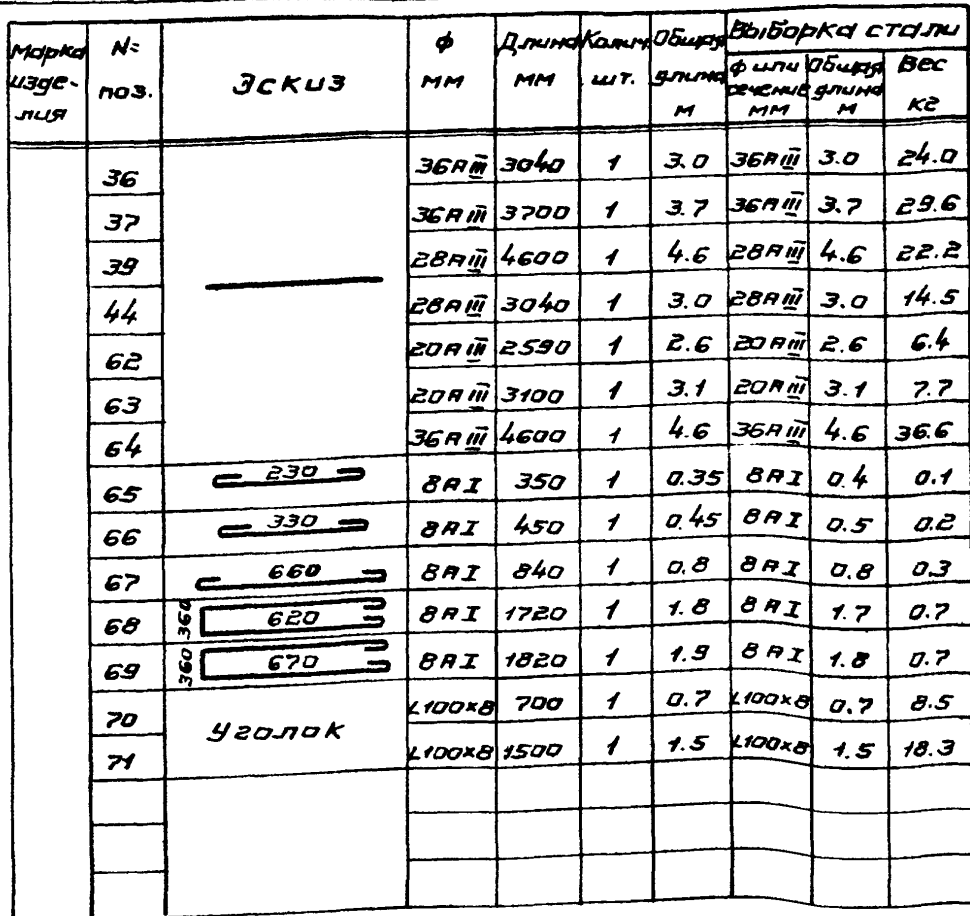 Марка изделия | N= поз. | Эскиз | ф мм | Длина мм | Колич. шт. | Общая длина м | Выборка стали
ф или сечение мм | Общая длина м | Вес кг
36 | 36АIII | 3040 | 1 | 3.0 | 36АIII | 3.0 | 24.0
37 | 36АIII | 3700 | 1 | 3.7 | 36АIII | 3.7 | 29.6
39 | 28АIII | 4600 | 1 | 4.6 | 28АIII | 4.6 | 22.2
44 | 28АIII | 3040 | 1 | 3.0 | 28АIII | 3.0 | 14.5
62 | 20АIII | 2590 | 1 | 2.6 | 20АIII | 2.6 | 6.4
63 | 20АIII | 3100 | 1 | 3.1 | 20АIII | 3.1 | 7.7
64 | 36АIII | 4600 | 1 | 4.6 | 36АIII | 4.6 | 36.6
65 | 230 | 8АI | 350 | 1 | 0.35 | 8АI | 0.4 | 0.1
66 | 330 | 8АI | 450 | 1 | 0.45 | 8АI | 0.5 | 0.2
67 | 660 | 8АI | 840 | 1 | 0.8 | 8АI | 0.8 | 0.3
68 | 360 | 620 | 8АI | 1720 | 1 | 1.8 | 8АI | 1.7 | 0.7
69 | 360 | 670 | 8АI | 1820 | 1 | 1.9 | 8АI | 1.8 | 0.7
70 | Уголок | L100×8 | 700 | 1 | 0.7 | L100×8 | 0.7 | 8.5
71 | L100×8 | 1500 | 1 | 1.5 | L100×8 | 1.5 | 18.3